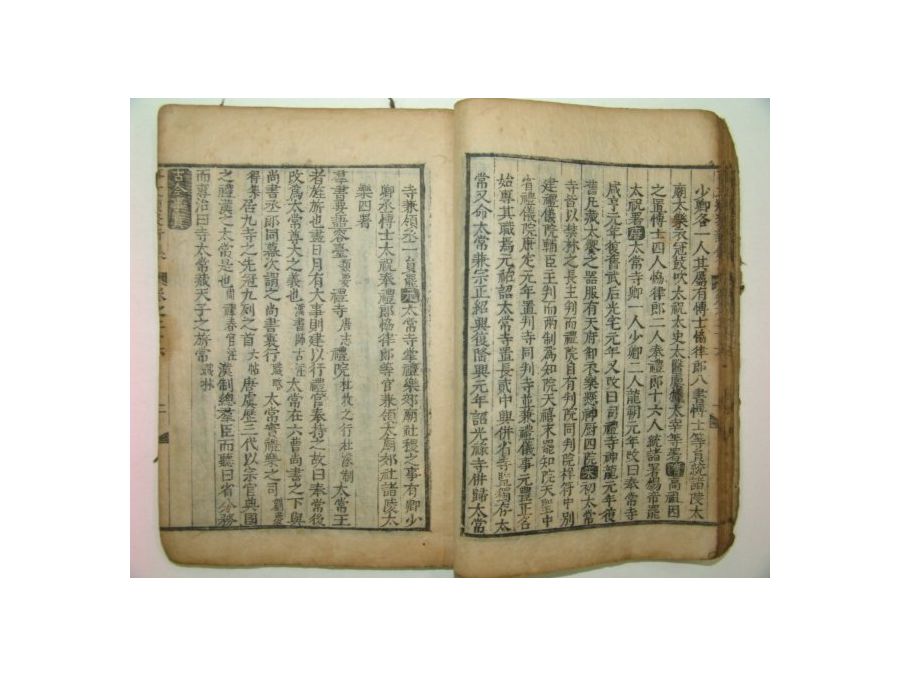 少卿各一人其屬有博士協律郎八書博士等員統諸陵太
廟太樂衣冠鼓吹太祝太史太醫廩犧太宰等署隋高祖因
之置博士四人協律郎二人奉禮郎十六人統諸署煬帝罷
太祝署唐太常寺卿一人少卿二人龍朔元年改曰奉常寺
咸亨元年復舊武后光宅元年又改曰司禮寺神龍元年復
舊凡藏太樂之器服有天府御衣樂懸神厨四院宋初太常
寺皆以禁林之長主判而禮院自有判院同判院祥符中別
建禮儀院輔臣主判而兩制爲知院天禧末罷知院天聖中
省禮儀院康定元年置判寺同判寺並兼禮儀事元豐正名
始專其職焉元祐詔太常寺置長貳中興併省寺監獨存太
常又命太常兼宗正紹興復隆興元年詔光祿寺併歸太常
寺兼領丞一員罷元太常寺掌禮樂郊廟社稷之事有卿少
卿丞博士太祝奉禮郎恊律郎等官兼領太廟郊社諸陵太
樂四署
羣書要語容臺 禮寺唐志禮院杜牧之行杜濛制太常王
者旌旂也畫日月有大事則建以行禮官奉持之故曰奉常後
改爲太常尊大之義也漢書師古注太常在六曹尚書之下與
尚書丞郎同幕次謂之尚書裏行職略太常實禮樂之司
得集侍九寺之先冠九列之首 唐虞歷三代以宗官典國
之禮 太常是也 漢制總羣臣而聽曰省分務
古今事實
而專治曰寺太常載天子之旂常職林